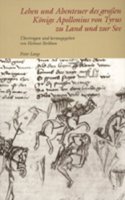 Leben und Abenteuer des großen
Königs Apollonius von Tyrus
zu Land und zur See
Übertragen und herausgegeben
von Helmut Birkhan
Peter Lang